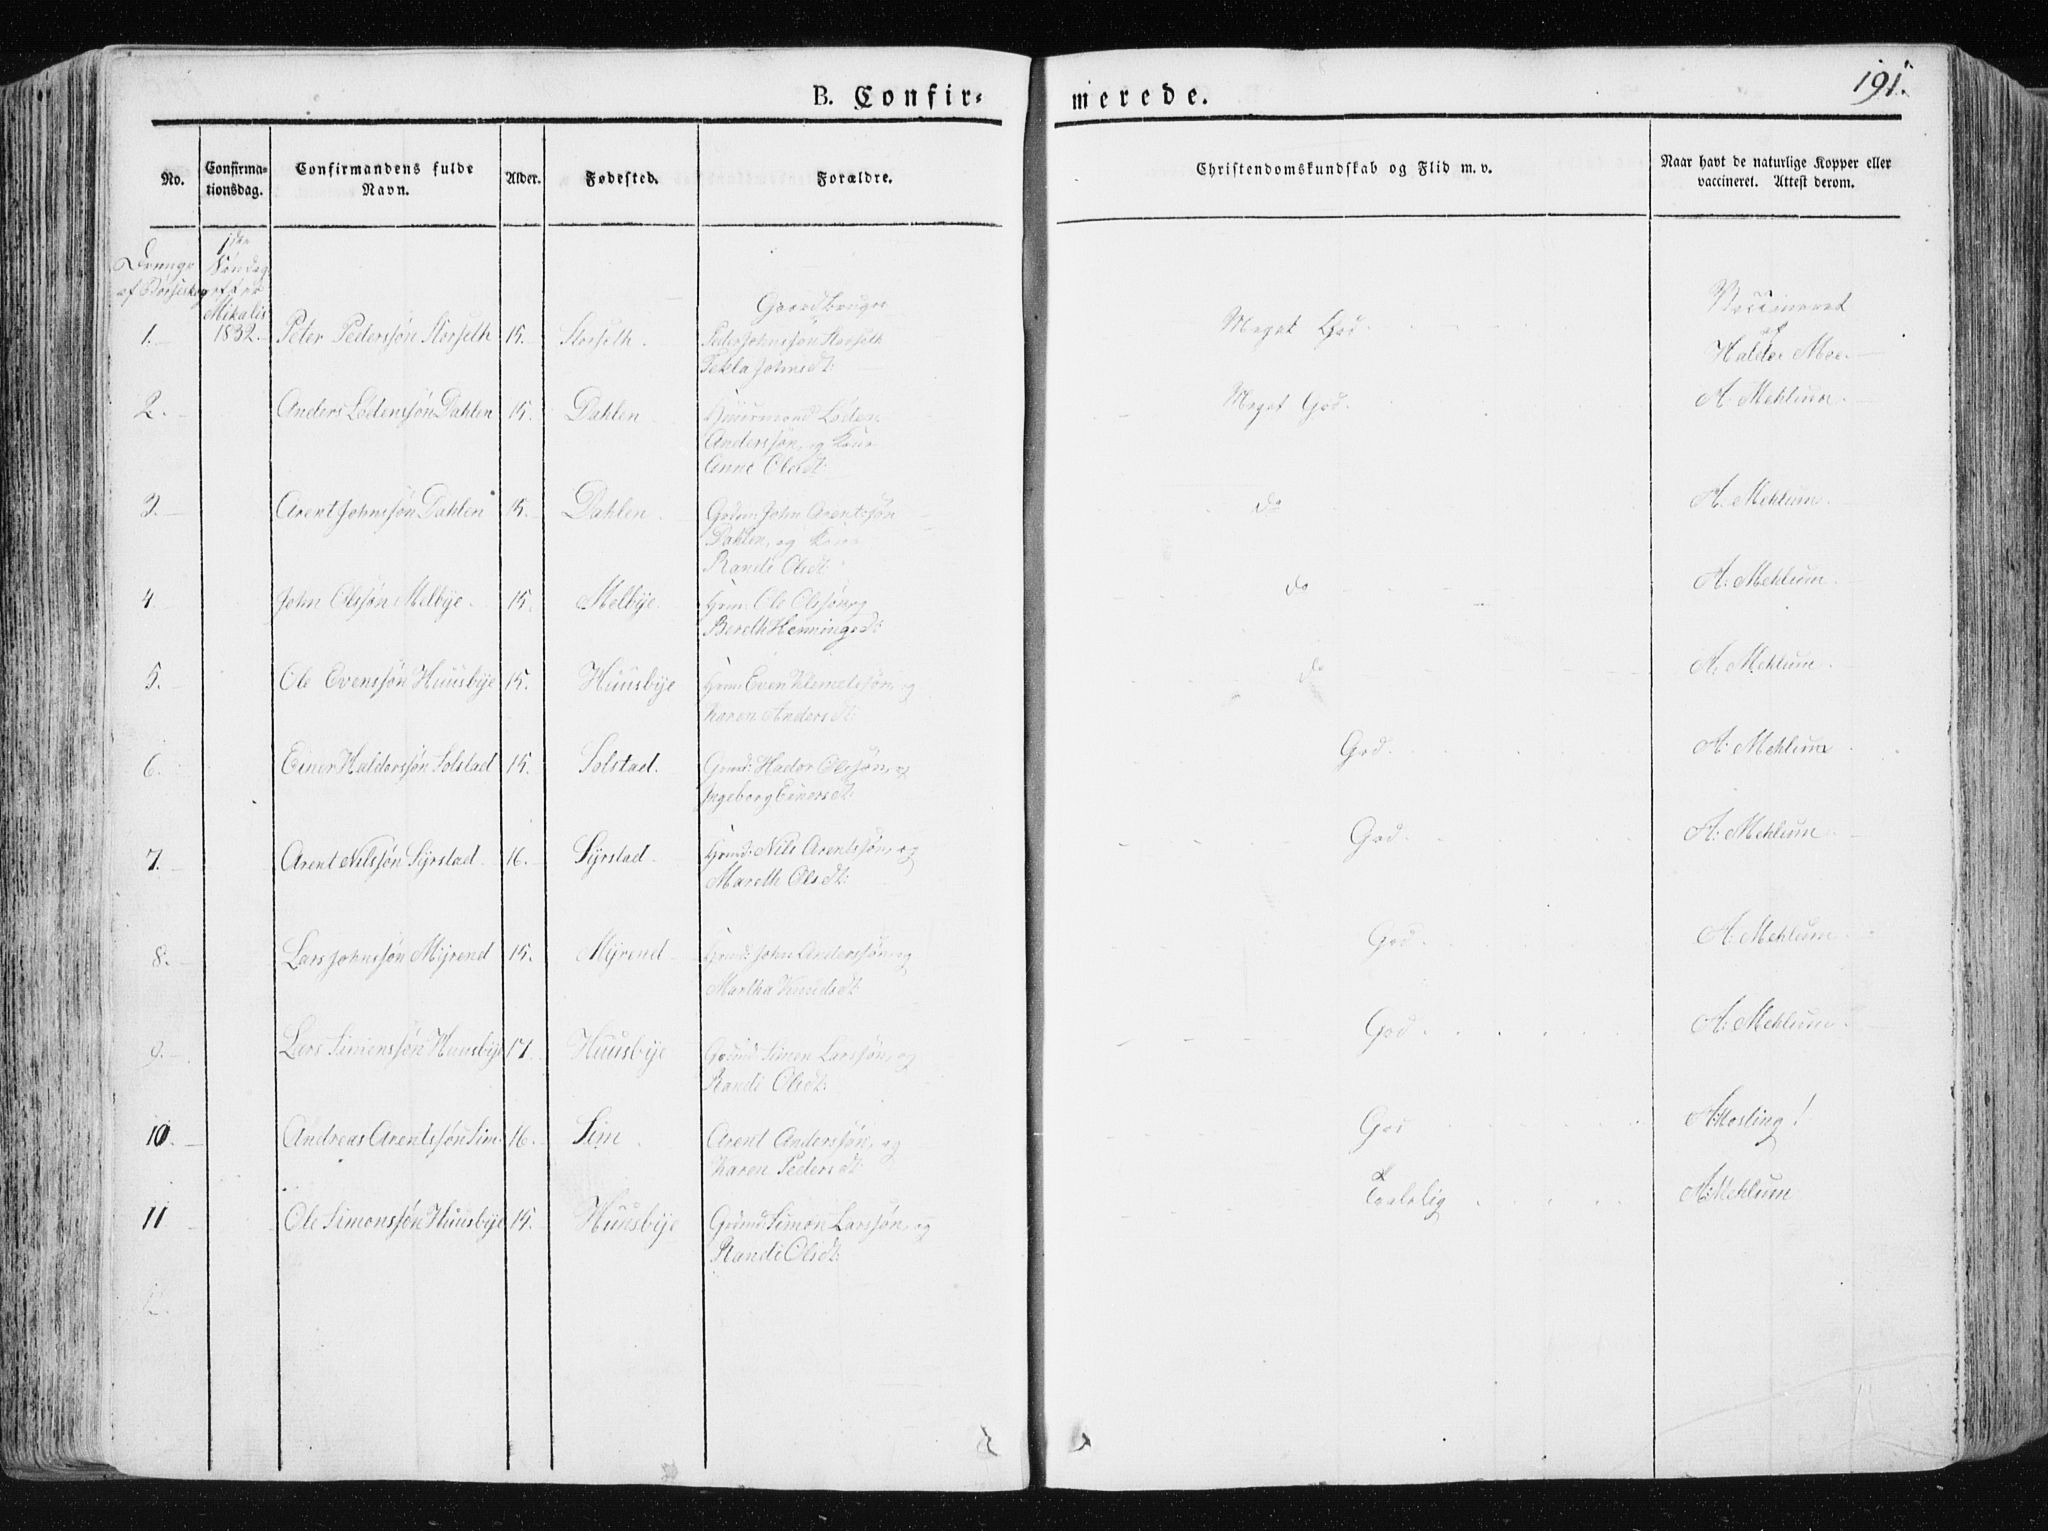 191.
B. Confir-
merede.
No.
Confirma-
tionsdag.
Confirmandens fulde
Navn.
Alder.
Fødested.
Forældre.
Christendomskundskab og Flid m. v.
Naar havt de naturlige Kopper eller
vaccineret. Attest derom.
Drenge
af Børseskog
1ste
Søndag
efter
Mikalis
1832.
Gaardbruger
1. Peter Pedersøn Storseth 15. Storseth. Peder Johnssøn Storseth
Tekla Johnsdt:
Meget God. Vaccineret
af
Haldor Moe.
2. Anders Lodenssøn Dahlen 15. Dahlen Huusmand Loden
Anderssøn, og Kone
Anne Olsdt:
Meget God. A: Mehlum.
3. Arent Johnssøn Dahlen 15. Dahlen. John Arentssøn
Dahlen, og Kone
Randi Olsdt:
do A: Mehlum.
4. John Olssøn Melbye. 15. Melbye. Hsm: Ole Olssøn og
Bereth Henningsdt:
do A: Mehlum.
5. Ole Evenssøn Huusbye 15. Huusbye Hsm: Even Klemetsøn, og
Karen Andersdt:
do A: Mehlum.
6. Einer Haldorssøn Solstad 15. Solstad. Hador Olssøn, og
Ingeborg Einersdt:
God A: Mehlum
7. Arent Nilssøn Syrstad. 16. Syrstad. Nils Arentssøn, og
Mareth Olsdt:
God. A: Mehlum.
8. Lars Johnssøn Myrend 15. Myrend John Anderssøn, og
Martha Knudsdt:
God. A: Mehlum.
9. Lars Simenssøn Huusbye 17. Huusbye Simen Larssøn, og
Randi Olsdt:
God. A: Mehlum.
10. Andreas Arentssøn Sim. 16. Sim. Arent Anderssøn, og
Karen Pedersdt:
God A: Mosling!
11 Ole Simonssøn Huusbye 15. Huusbye Simon Larssøn, og
Randi Olsdt:
Taalelig A: Mehlum
12.